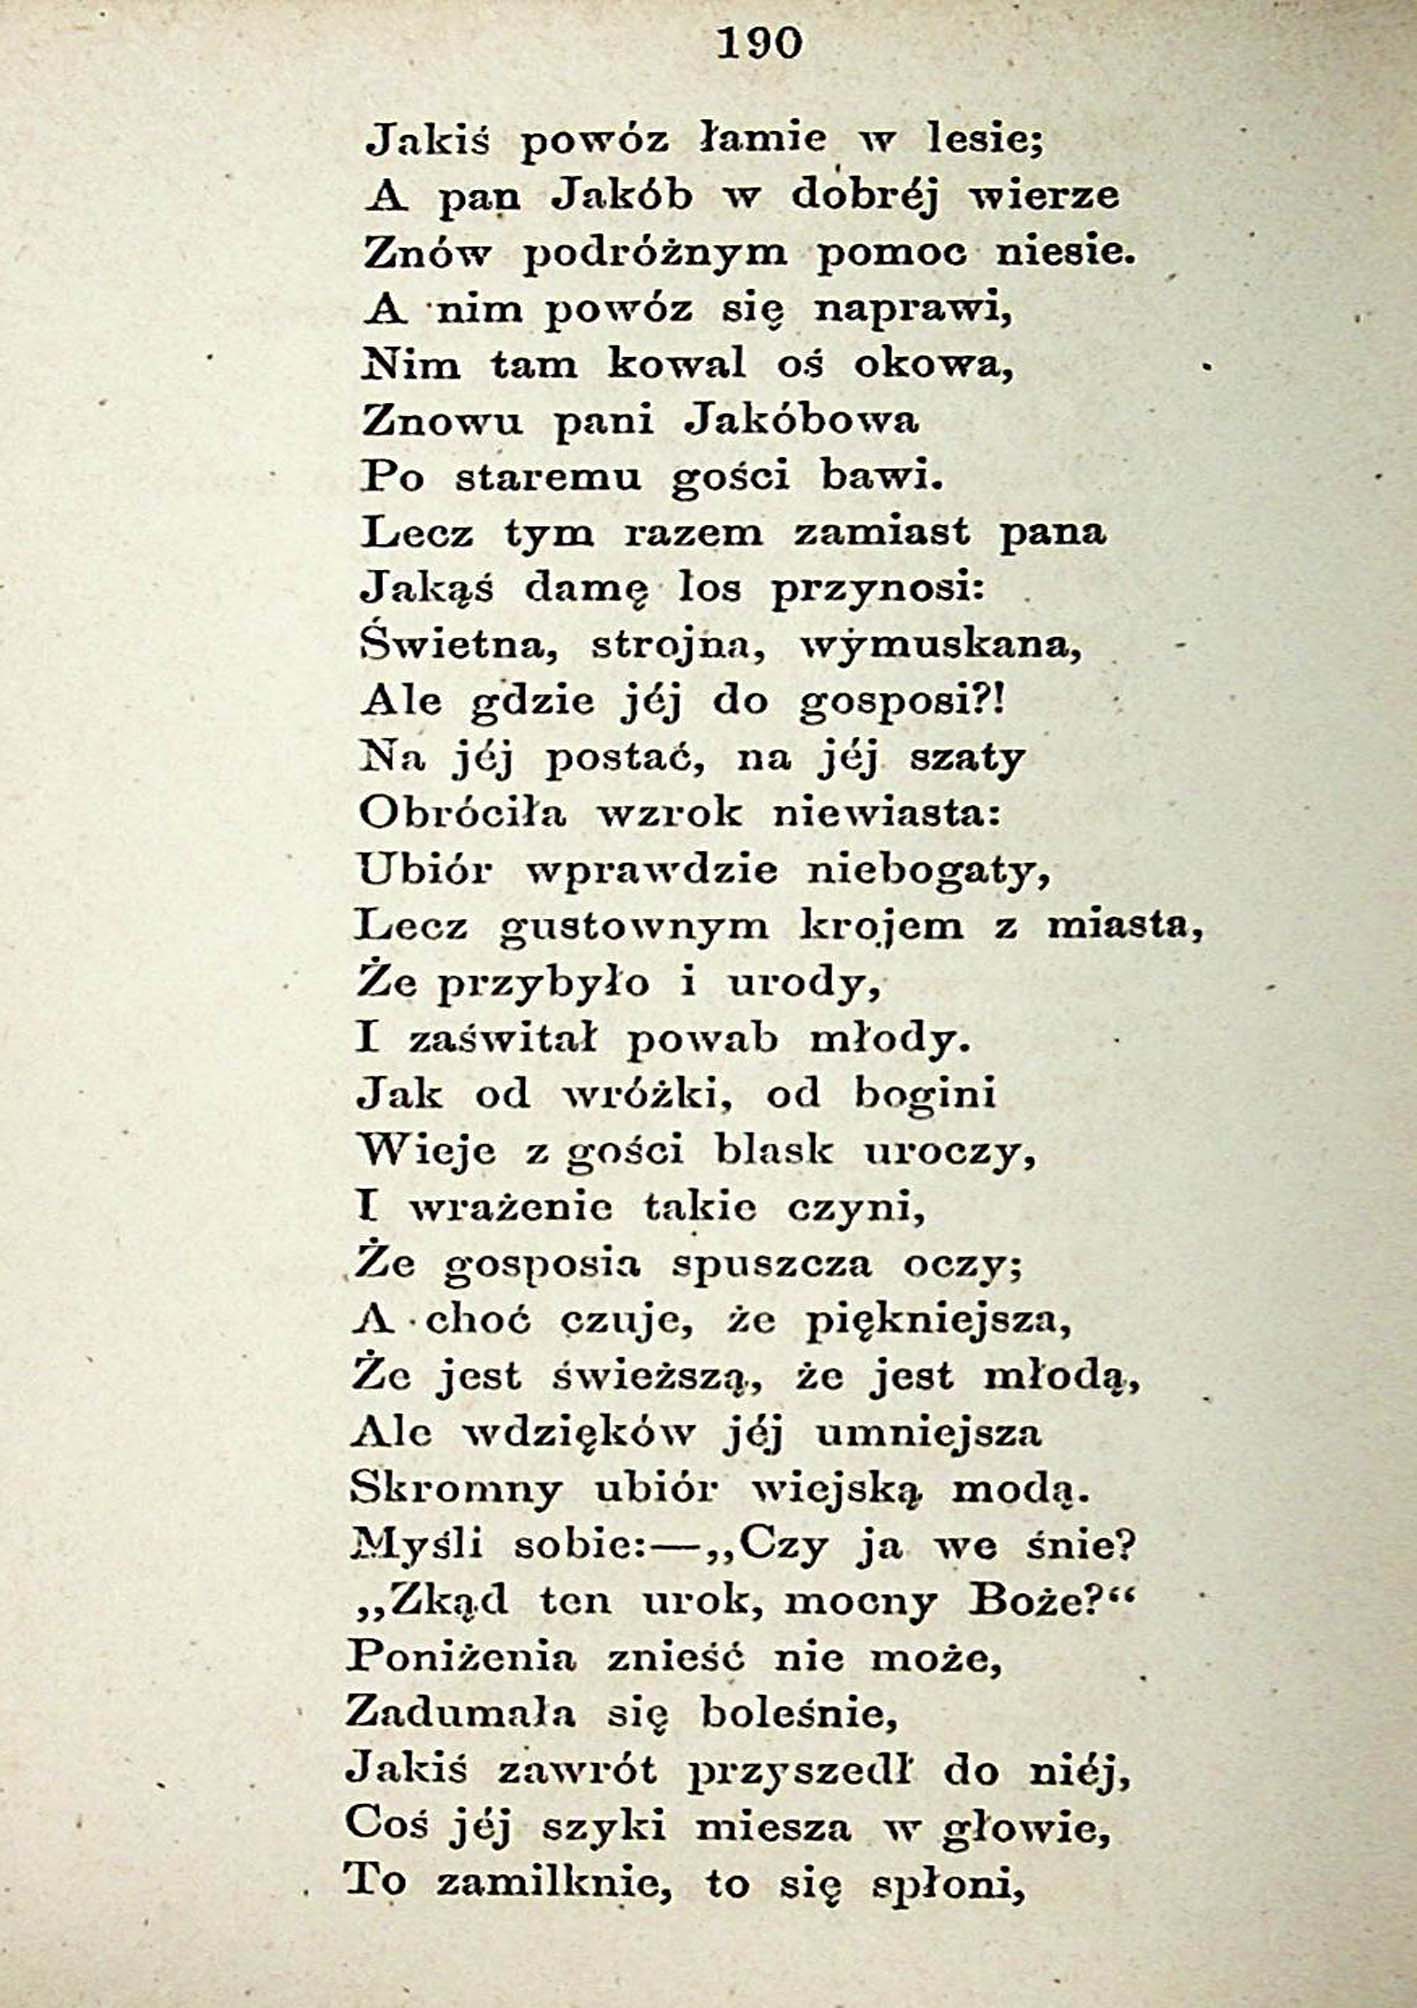 190
Jakiś powóz łamie w lesie;
A pan Jakób w dobréj wierze
Znów podróżnym pomoc niesie.
A nim powóz się naprawi,
Nim tam kowal oś okowa,
Znowu pani Jakóbowa
Po staremu gości bawi.
Lecz tym razem zamiast pana
Jakąś damę los przynosi:
Świetna, strojna, wymuskana,
Ale gdzie jéj do gosposi?!
Na jéj postać, na jéj szaty
Obróciła wzrok niewiasta:
Ubiór wprawdzie niebogaty,
Lecz gustownym krojem z miasta,
Że przybyło i urody,
I zaświtał powab młody.
Jak od wróżki, od bogini
Wieje z gości blask uroczy,
I wrażenie takie czyni,
Że gosposia spuszcza oczy;
A choć czuje, że piękniejsza,
Że jest świeższą, że jest młodą,
Ale wdzięków jéj umniejsza
Skromny ubiór wiejską modą.
Myśli sobie:—„Czy ja we śnie?
„Zkąd ten urok, mocny Boże?“
Poniżenia znieść nie może,
Zadumała się boleśnie,
Jakiś zawrót przyszedł do niéj,
Coś jéj szyki miesza w głowie,
To zamilknie, to się spłoni,